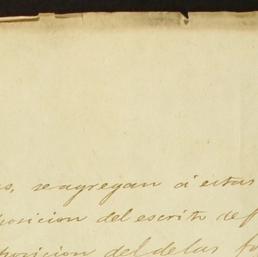 se agregan á estas
posicion del escrito
posicion del de las